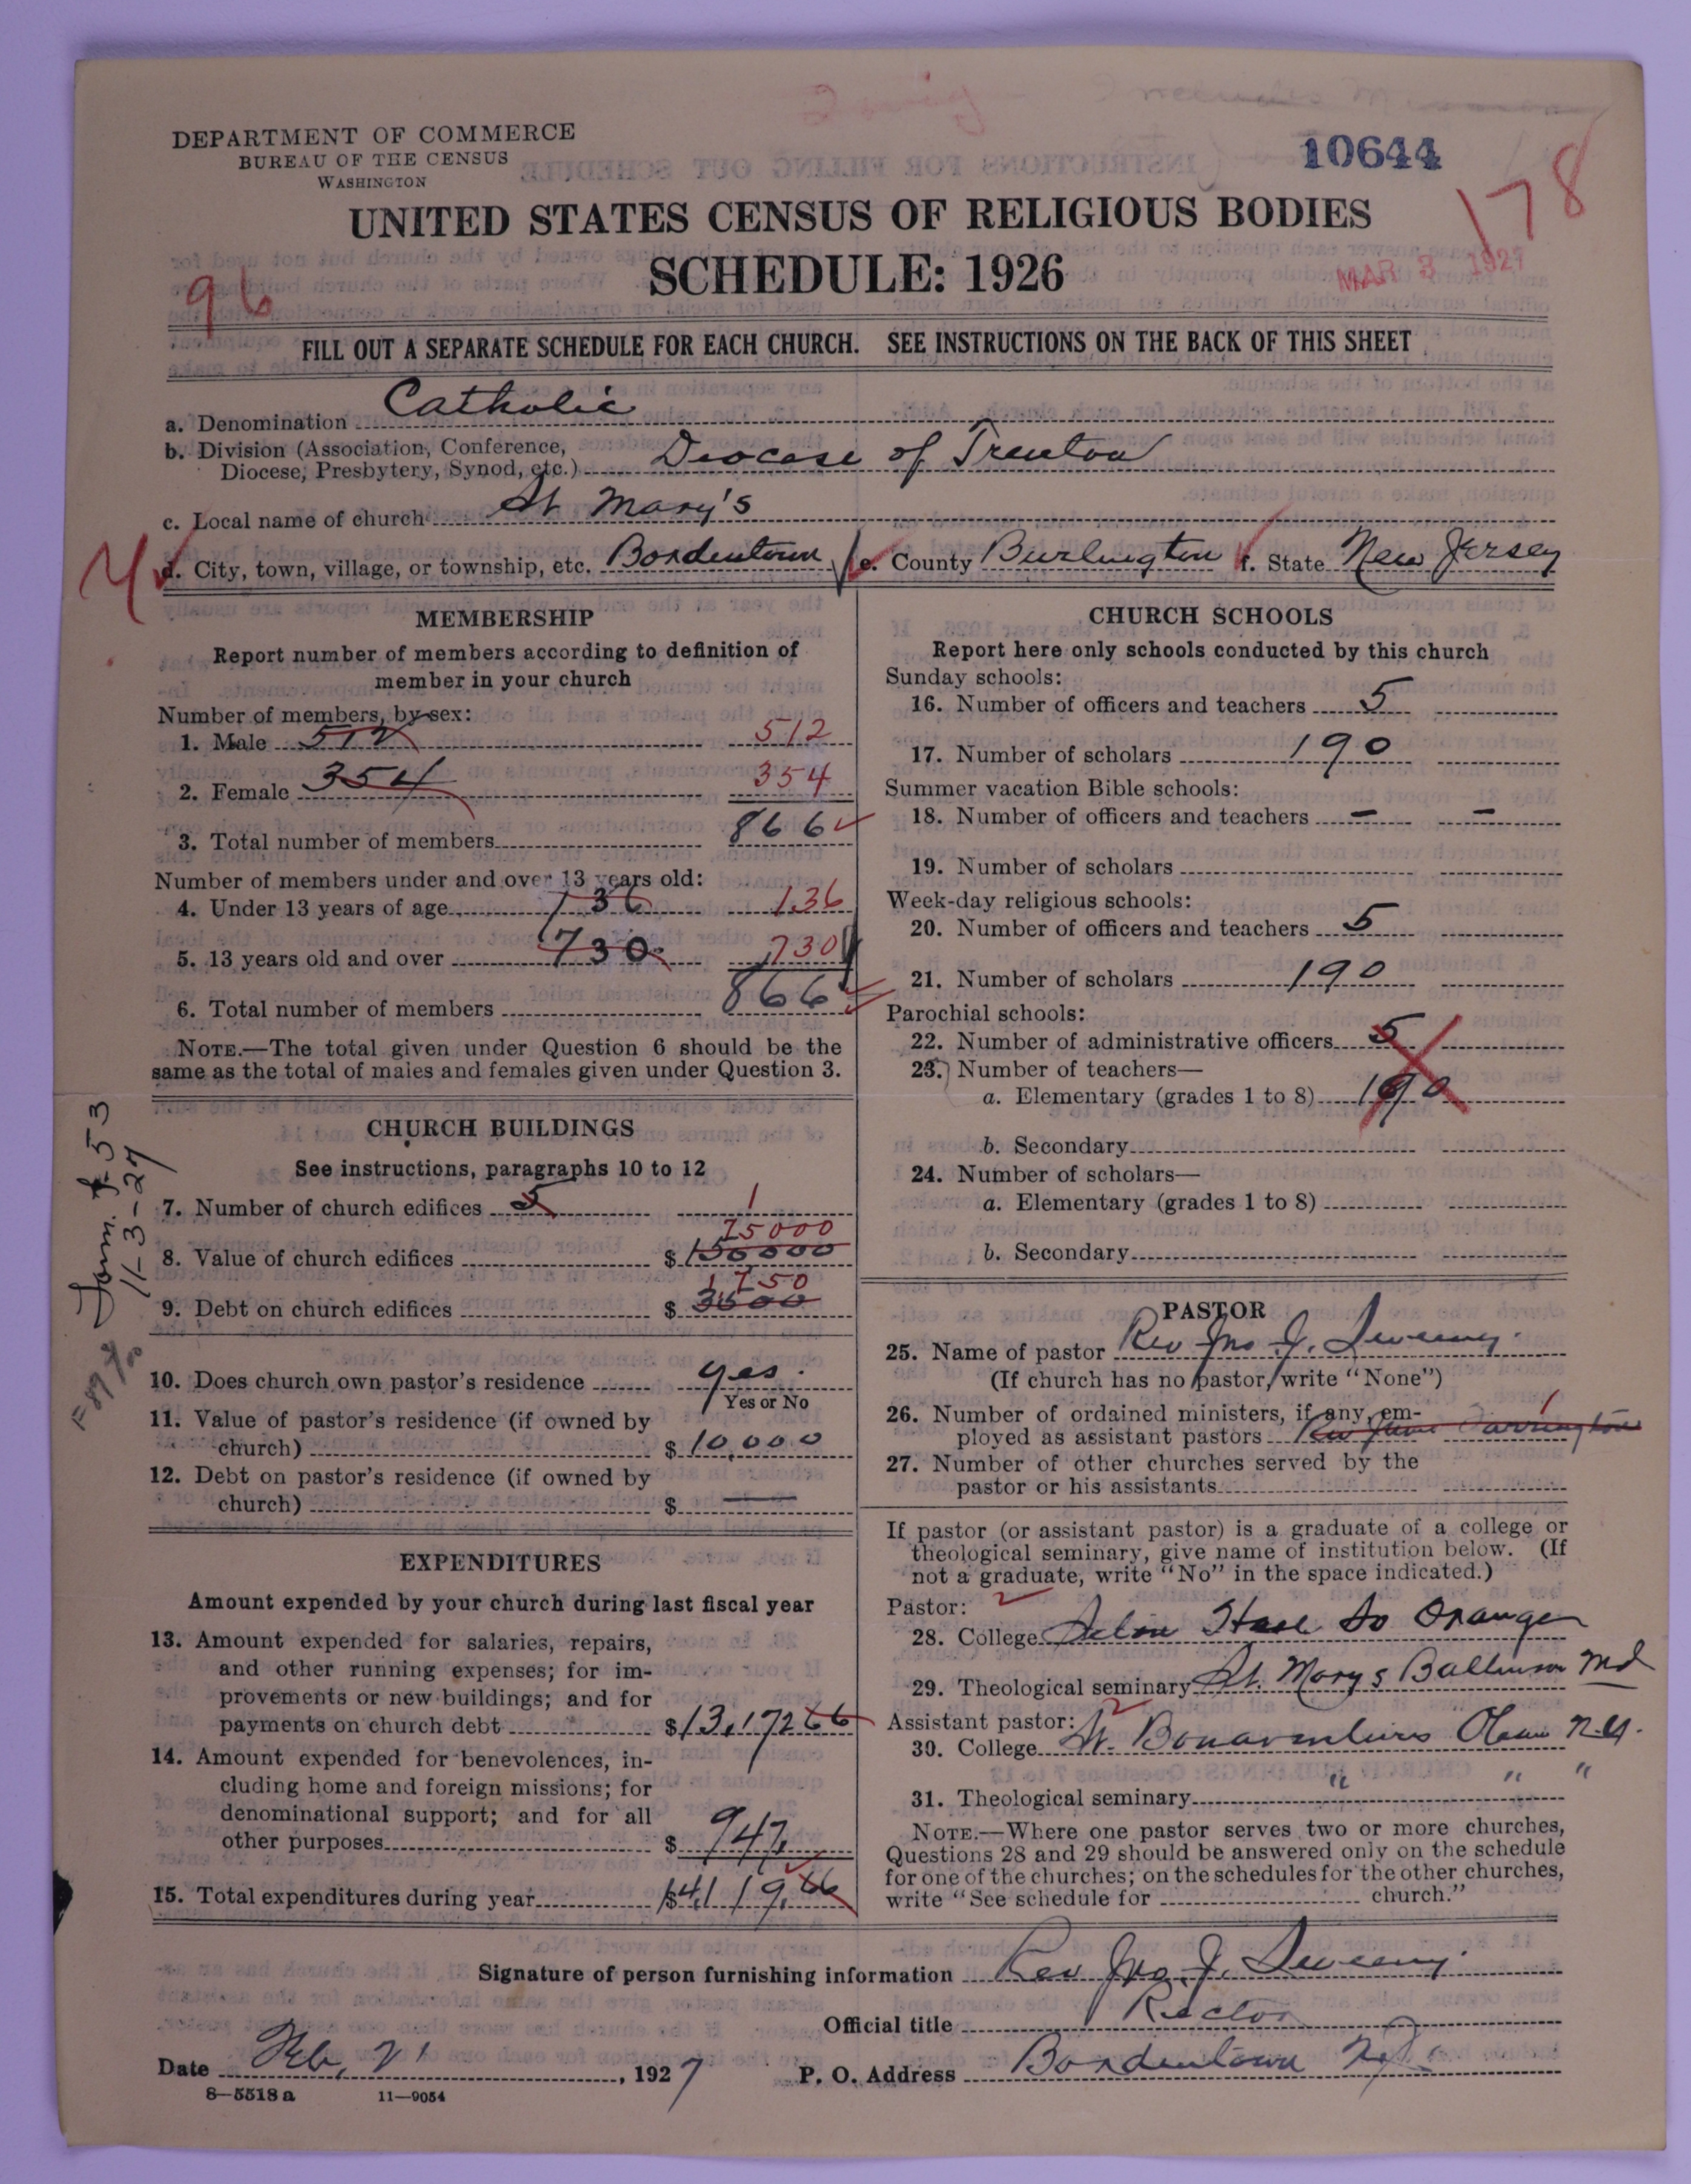 DEPARTMENT OF COMMERCE
BUREAU OF THE CENSUS
WASHINGTON
10644
178
UNITED STATES CENSUS OF RELIGIOUS BODIES
SCHEDULE: 1926
MAR 3 1927
96
FILL OUT A SEPARATE SCHEDULE FOR EACH CHURCH. SEE INSTRUCTIONS ON THE BACK OF THIS SHEET
a. Denomination Catholic
b. Division (Association, Conference, Diocese, Presbytery, Synod, etc.) Diocese of Trenton
c. Local name of church St Mary's
d. City, town, village, or township, etc. Bordentown e. County Burlington f. State New Jersey
MEMBERSHIP
Report number of members according to definition of
member in your church
Number of members, by sex:
1. Male 512 512
2. Female 354 354
3. Total number of members 866
Number of members under and over 13 years old:
4. Under 13 years of age 136 136
5. 13 years old and over 730 730
6. Total number of members 866
NOTE.—The total given under Question 6 should be the
same as the total of males and females given under Question 3.
CHURCH BUILDINGS
See instructions, paragraphs 10 to 12
7. Number of church edifices 5 1
8. Value of church edifices $150000 75000
9. Debt on church edifices $3500 1750
10. Does church own pastor's residence yes.
Yes or No
11. Value of pastor's residence (if owned by
church) $10,000
12. Debt on pastor's residence (if owned by
church) $ —
11-3-27
EXPENDITURES
Amount expended by your church during last fiscal year
13. Amount expended for salaries, repairs,
and other running expenses; for im-
provements or new buildings; and for
payments on church debt $13,172 66
14. Amount expended for benevolences, in-
cluding home and foreign missions; for
denominational support; and for all
other purposes $947.
15. Total expenditures during year $14,119.66
CHURCH SCHOOLS
Report here only schools conducted by this church
Sunday schools:
16. Number of officers and teachers 5
17. Number of scholars 190
Summer vacation Bible schools:
18. Number of officers and teachers — —
19. Number of scholars
Week-day religious schools:
20. Number of officers and teachers 5
21. Number of scholars 190
Parochial schools:
22. Number of administrative officers 5
23. Number of teachers—
a. Elementary (grades 1 to 8) 190
b. Secondary
24. Number of scholars—
a. Elementary (grades 1 to 8)
b. Secondary
PASTOR
25. Name of pastor Rev Jno J. Sweeny.
(If church has no pastor, write "None")
26. Number of ordained ministers, if any, em-
ployed as assistant pastors Rev 1
27. Number of other churches served by the
pastor or his assistants
If pastor (or assistant pastor) is a graduate of a college or
theological seminary, give name of institution below. (If
not a graduate, write "No" in the space indicated.)
Pastor:
28. College Seton Hall So Orange
29. Theological seminary St. Mary's Baltimore Md
Assistant pastor:
30. College St. Bonaventures Olean N.Y.
31. Theological seminary " " "
NOTE.—Where one pastor serves two or more churches,
Questions 28 and 29 should be answered only on the schedule
for one of the churches; on the schedules for the other churches,
write "See schedule for church."
Signature of person furnishing information Rev Jno. J. Sweeny.
Official title Rector
Date Feb, 21, 1927 P. O. Address Bordentown N.J.
8—5518 a 11—9054